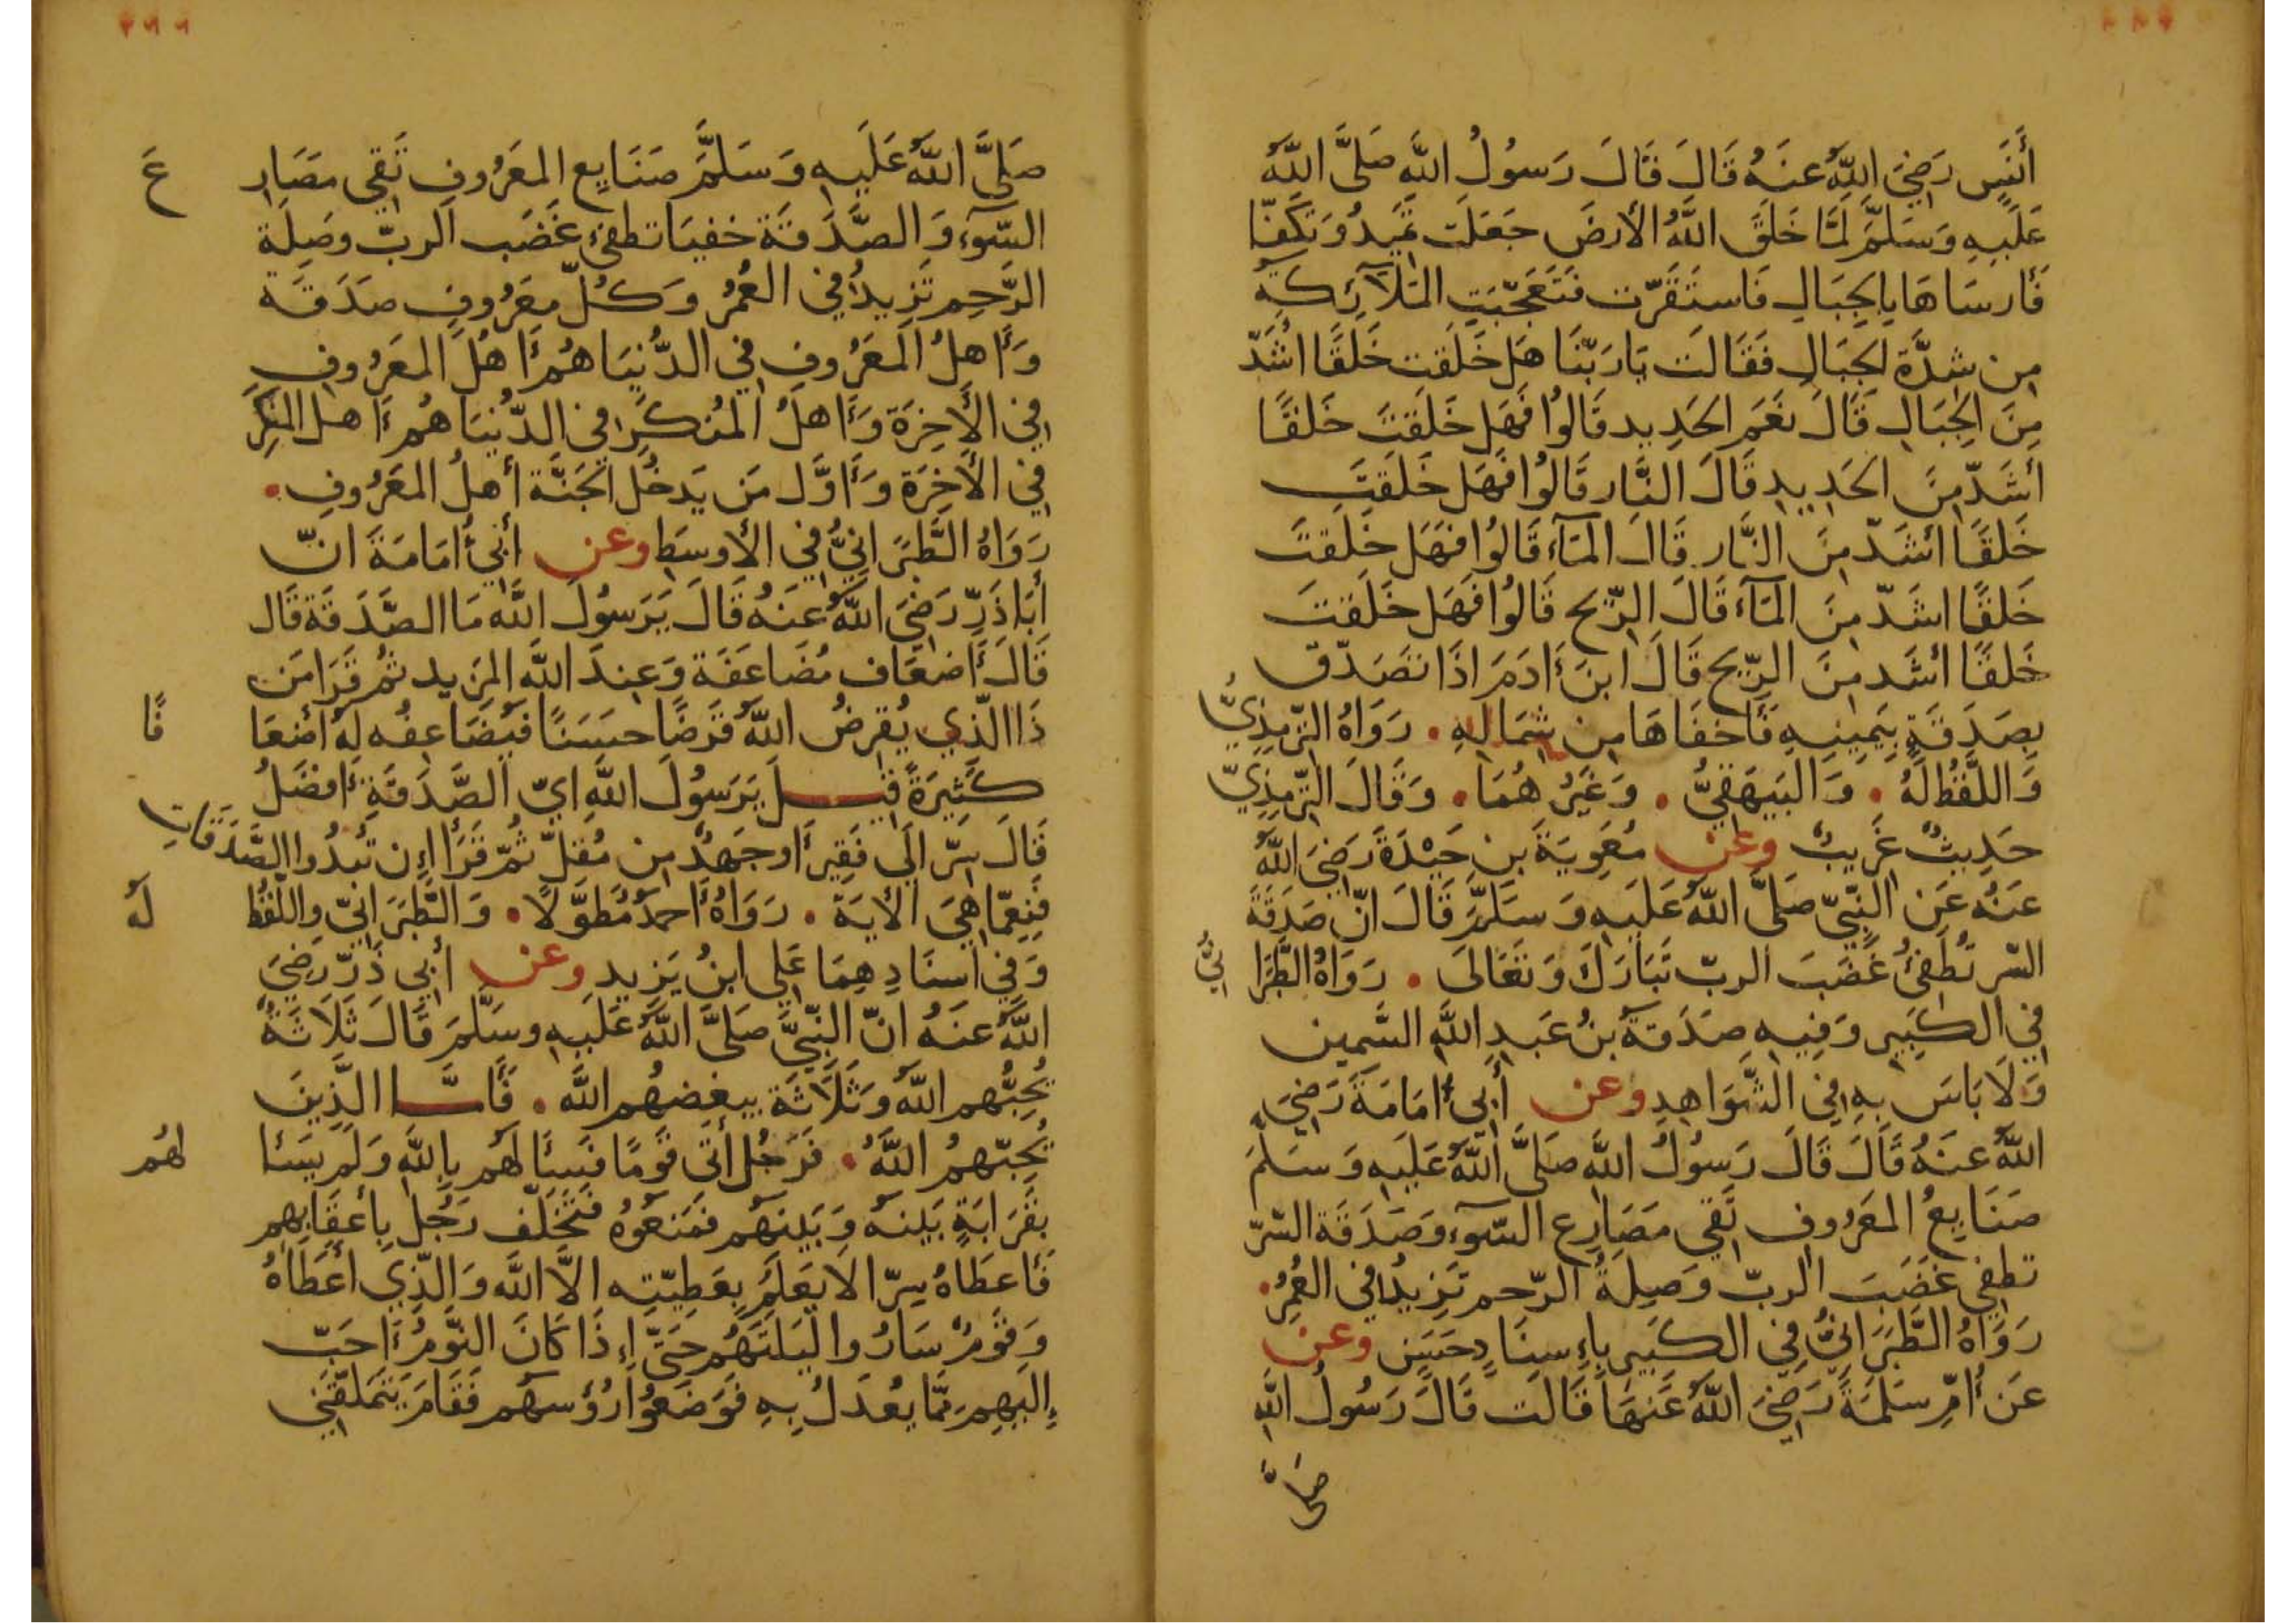 أَنَسٍ رَضِيَ اللَّهُ عَنهُ قَالَ قَالَ رَسُولُ اللَّهِ صَلَّى اللَّهُ
عَلَيهِ وَسَلَّمَ لَمَّا خَلَقَ اللَّهُ الأَرضَ جَعَلَت تَمِيدُ وَتَكَفّا
فَأرسَاهَا بِالجِبَالِ فَاستَقَرّت فَتَعَجّبَتِ المَلَآئِكَةِ
مِن شِدَّةِ الجِبَالِ فَقَالَت يَارَبّنَا هَل خَلَقت خَلقًا اشَدّ
مِنَ الجِبَالِ قَالَ نَعَم الحَدِيد قَالُوا فَهَل خَلَقتَ خَلقًا
أشَدّ مِنَ الحَدِيدِ قَالَ النَّار قَالُوا فَهَل خَلَقتَ
خَلقًا أشَدّ مِنَ النَّار قَالَ المَآءَ قَالُوا فَهَل خَلَقتَ
خَلقًا اشَدّ مِنَ المَآءَ قَالَ الرّيح قَالُوا فَهَل خَلَقتَ
خَلقًا أشَد مِنَ الرّيح قَالَ ابنَ ءَادَمَ اذَا تَصَدّق
بِصَدَقَةٍ بِيَمِينِهِ فَأَخفَاهَا مِن شِمَالِهِ . رَوَاهُ التّرمِذِيُّ
وَاللَّفظُ لَهُ . وَالبَيهَقِيُّ . وَغَيرُ هُمَا . وَقَالَ التّرمِذِيّ
حَدِيثٌ غَرِيبٌ وعن مُعَوِيَةَ بنِ حَيْدَةَ رَضِيَ اللَّهُ
عَنهُ عَنِ النَّبِيّ صَلَّى اللَّهُ عَلَيهِ وَسَلَّمَ قَالَ انّ صَدَقَةَ
السّر تُطفِئُ غَضَبَ الربّ تَبَارَكَ وَتَعَالَى . رَوَاهُ الطَّبَرَا نِيُّ
فِي الكَبِيرِ وَفِيهِ صَدَقَةُ بنُ عَبدِ اللَّهِ السَّمِين
وَلَا بَاسَ بِهِ فِي الشَّوَاهِدِ وعن أَبِي أُمَامَةَ رَضِيَ
اللَّهُ عَنهُ قَالَ قَالَ رَسُولُ اللَّهِ صَلَّى اللَّهُ عَلَيهِ وَسَلَّمَ
صَنَايِعُ المَعَرُوفِ تَقِي مَصَارِع السّوءِ وَصَدَقَة السّرّ
تطفِي غَضَبَ الربّ وَصِلَةُ الرّحم تَزِيدُ فِي العُمُرِ .
رَوَاهُ الطَّبَرَانِيُّ فِي الكَبِيرِ بِإِسنَادٍ حَسَنٍ وعن
عَن أُمِّ سَلَمَةَ رَضِيَ اللَّهُ عَنهَا قَالَت قَالَ رَسُولُ اللَّهِ
صَلَّى
صَلَّى اللَّهُ عَلَيهِ وَسَلَّمَ صَنَايِع المَعَرُوفِ تَقِي مَصَارِ عَ
السّوءِ وَالصَّدَقَة خَفيَا تطفئ غَضَب الربّ وصِلَة
الرَّحِم تَزِيدُ فِي العُمُر وَكُلّ مَعرُوفٍ صَدَقَة
وَأَهلُ المَعَرُوفِ فِي الدُّنيَا هُم أَهلُ المَعَرُوفِ
فِي الأَخِرَة وَأَهلُ المُنكَرِ فِي الدّنيَا هُم أَهل المُنكَرِ
فِي الأَخِرَة وَأَوَّل مَن يَدخُل الجَنَّة أهلُ المَعَرُوفِ .
رَوَاهُ الطَّبَرَانِيُّ فِي الأوسَطِ وعن أَبِي أُمَامَةَ انّ
أَبَاذَرّ رَضِيَ اللَّهُ عَنهُ قَالَ يَرَسُولَ اللَّهِ مَا الصَّدَقَة قَال
قَالَ أَضعَاف مُضَاعَفَة وَعِندَ اللَّهِ المَزِيد ثُم قَرَا مَن
ذَا الَّذِي يُقرِضُ اللَّهَ قَرضًا حسَنًا فَيُضَاعِفُه لَهُ أضعَا فًا
كَثِيرَةً قِيلَ يَرَسُولَ اللَّهِ ايّ الصَّدَقَةِ أَفضَلُ
قَالَ سِرّ الَى فَقِير أَوجَهدٌ مِن مُقِلّ ثُمّ قَرَأَ إِن تُبدُوا الصَّدَقَاتِ
فَنِعِمّا هِيَ الأيَة . رَوَاهُ أَحمَدُ مُطَوَّلًا . وَالطَّبَرَانِيّ واللَّفظُ لَهُ
وَفِي اسنَادِهِمَا عَلِي ابنُ يَزِيد وعن أَبِي ذَرّ رَضِيَ
اللَّهُ عَنهُ انّ النّبِيَّ صَلَّى اللَّهُ عَلَيهِ وسَلَّمَ قَالَ ثَلَاثَةٌ
يُحِبُّهم اللَّهُ وَثَلَاثَة يبغِضهُم اللَّه . فَأَمَّا الَّذِينَ
يُحِبّهمُ اللَّهُ . فَرَجُل أتَى قَومًا فَسَأَلَهُم بِاللَّهِ وَلَم يَسَئا لهُم
بِقَرَابَةٍ بَينَهُ وَبَينَهُم فَمَنَعَوُهُ فَتَخَلّف رَجُل بِأَعقَابِهِم
فَأَعطَاهُ سِرّا لَا يَعَلَمُ بِعَطِيّتِه الَّا اللَّه وَالَّذِي أَعطَاهُ
وَقَومٌ سَارُوا لَيلَتَهُم حَتَّى إِذَا كَانَ النَّومُ أَحَبّ
إِلَيهِم مِمَّا يُعدَلُ بِهِ فَوَضَعُوا رُؤُسَهُم فَقَامَ يَتَملقَنِي